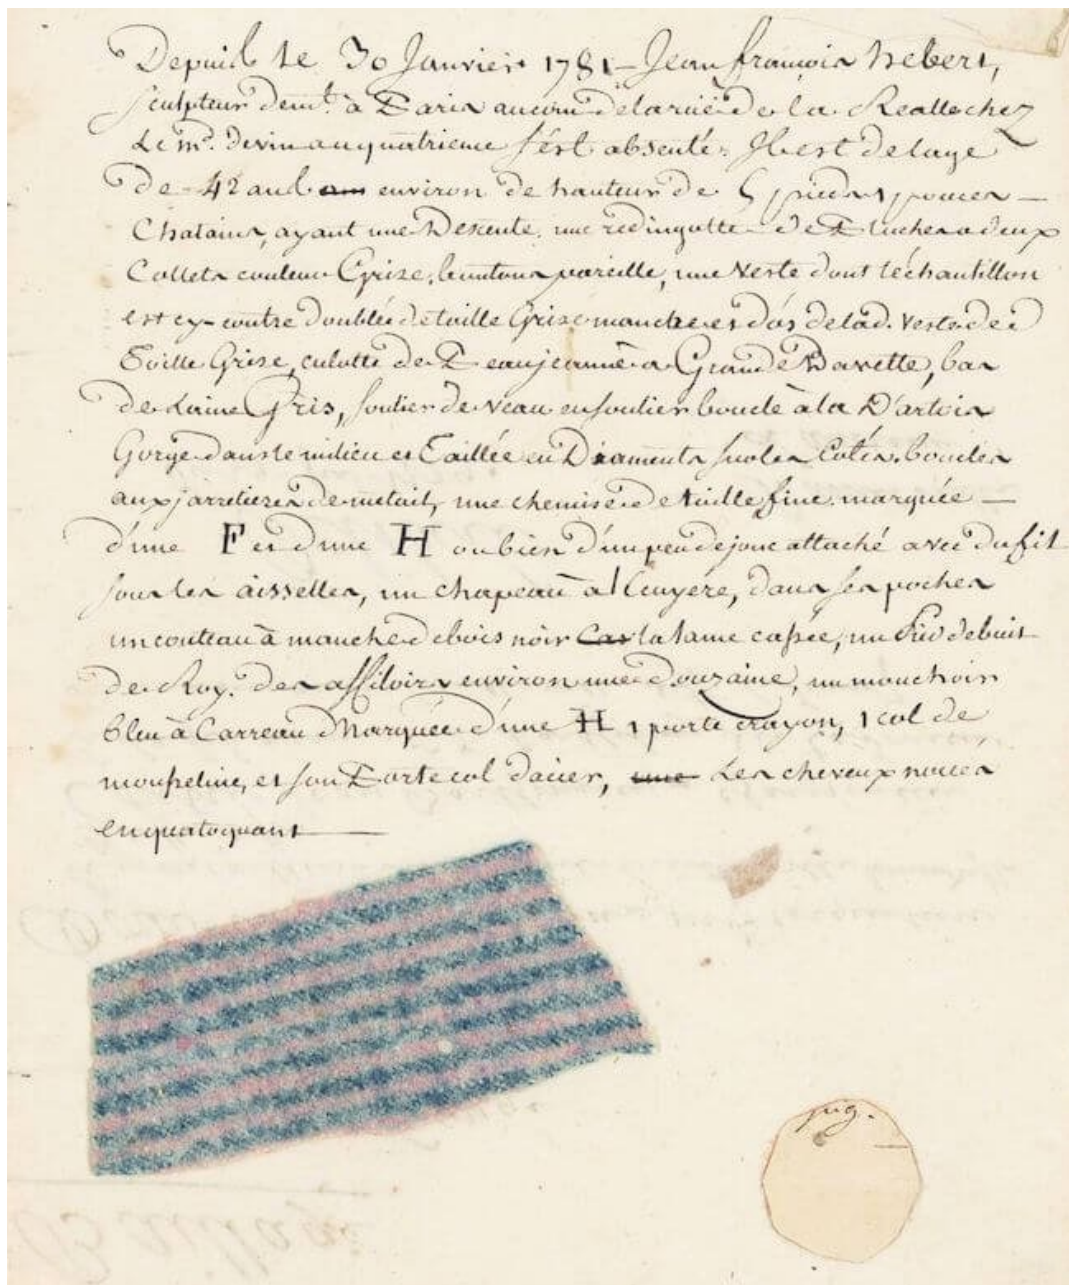 Depuis le 30 Janvier 1781 – Jean françois hebert,
sculpteur demt. à Paris au coin de la ruë de la Realle chez
Le md. de vin au quatrieme s'ést absenté. Il est de lage
de 42 ans ans environ de hauteur de 5 pieds 1 pouces —
Chatains, ayant une Descente, une redingotte de Pluche a deux
Collets couleur Grize, bouttons pareille, une Veste dont léchantillon
est cy-contre doublée de toille Grize manche et dós de lad. Veste de
Toille Grise, culotte de Peau jeaune a Grande Bavette, bas
de Laine Gris, soulier de veau en soulier boucle à la D'artois
Gorge dans le milieu et Taillée en Diaments sur les Cotés. boucles
aux jarretieres de metail, une chemise de toille fine marquée —
d'une F et d'une H ou bien d'un peu de jonc attaché avec du fil
sous les aisselles, un chapeau à l'Ecuyére, dans ses poches
un couteau à manche de bois noir Cas la lame cassée, un Pied de buis
de Roy. des affiloirs environ une douzaine, un mouchoir
bleu à Carreau Marquée d'une H 1 porte crayon, 1 col de
mousseline, et son Porte col d'acier, une Les cheveux nouës
en quatoquant —
pig.